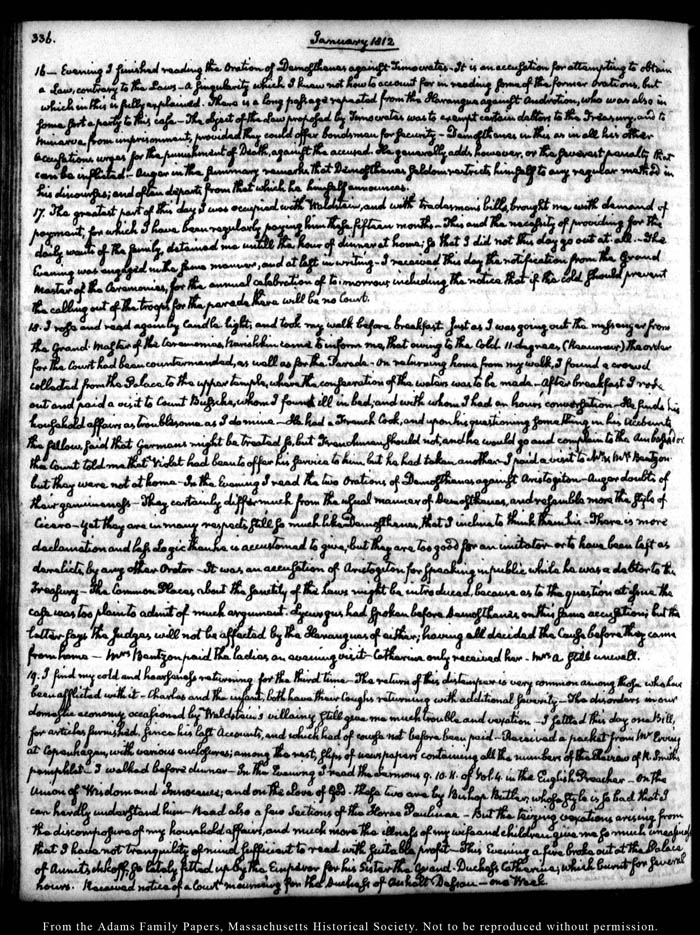 336.
January 1812
16— Evening I finished reading the Oration of Demosthenes against Timocrates. It is an accusation for attempting to obtain
a Law, contrary to the Laws— A singularity which I knew not how to account for in reading some of the former orations, but
which in this is fully explained. There is a long passage repeated from the Harangue against Androtion, who was also in
some sort a party to this case— The object of the Law proposed by Timocrates was to exempt certain debtors to the Treasury, and to
Minerva from imprisonment, provided they could offer bondsmen for security— Demosthenes in this as in all his other
accusations urges for the punishment of Death, against the accused. He generally adds however, or the severest penalty that
can be inflicted— Auger in the summary remarks that Demosthenes seldom restricts himself to any regular method in
his discourses; and often departs from that which he himself announces.
17. The greatest part of this day I was occupied with Waldstein, and with tradesmen's bills, brought me with demand of
payment, for which I have been regularly paying him these fifteen months— This and the necessity of providing for the
daily wants of the family, detained me untill the hour of dinner at home; so that I did not this day go out at all.— The
Evening was engaged in the same manner, and at last in writing— I received this day the notification from the Grand
Master of the Ceremonies, for the annual celebration of to-morrow, including the notice that if the cold should prevent
the calling out of the troops for the parade there will be no Court.
18. I rose and read again by Candle light; and took my walk before breakfast. Just as I was going out the messenger from
the Grand-Master of the Ceremonies Narishkin came to inform me, that owing to the Cold 11 degrees, (Reaumur) the order
for the Court had been countermanded, as well as for the Parade— On returning home from my walk, I found a crowd
collected from the Palace to the upper temple, where the consecration of the waters was to be made— After breakfast I rode
out and paid a visit to Count Bussche, whom I found ill in bed; and with whom I had an hour's conversation— He finds his
household affairs as troublesome as I do mine— He had a French Cook, and upon his questioning something in his Accounts
the fellow said that Germans might be treated so, but Frenchmen should not, and he would go and complain to the Ambassador
the Count told me that Violet had been to offer his service to him but he had taken another— I paid a visit to Mr & Mrs Bentzon
but they were not at home— In the Evening I read the two Orations of Demosthenes against Aristogiton— Auger doubts of
their genuineness— They certainly differ much from the usual manner of Demosthenes, and resemble more the style of
Cicero— yet they are in many respects still so much like Demosthenes, that I incline to think them his— There is more
declamation and less logic than he is accustomed to give, but they are too good for an imitator— or to have been left as
derelicts, by any other Orator— It was an accusation of Aristogiton for speaking in public while he was a debtor to the
Treasury— The Common Places about the sanctity of the Laws might be introduced, because as to the question at issue the
case was too plain to admit of much argument. Lycurgus had spoken before Demosthenes on this same accusation; but the
latter says the Judges will not be affected by the Harangues of either; having all decided the Cause before they came
from home— Mrs Bentzon paid the ladies an evening visit— Catherine only received her— Mrs A. still unwell.
19. I find my cold and hoarseness returning for the third time— The return of this distemper is very common among those who have
been afflicted with it— Charles and the infant, both have their Coughs returning with additional severity— The disorders in our
domestic economy occasioned by Waldstein's villainy still give me much trouble and vexation— I settled this day one Bill,
for articles furnished, since his last Accounts, and which had of course not before been paid— Received a packet from Mr Erving
at Copenhagen, with various enclosures; among the rest, slips of newspapers containing all the numbers of the Review of R. Smith's
pamphlet— I walked before dinner— In the Evening I read the Sermons 9. 10. 11. of Vol. 4. in the English Preacher— On the
Union of Wisdom and Innocence; and on the Love of God— these two are by Bishop Butler, whose style is so bad that I
can hardly understand him— Read also a few Sections of the Horae Paulinae— But the teizing vexations arising from
the discomposure of my household affairs, and much more the illness of my wife and children, give me so much uneasiness
that I have not tranquility of mind sufficient to read with suitable profit— This Evening a fire broke out at the Palace
of Aunitschkoff, so lately fitted up by the Emperor for his Sister the Grand-Duchess Catherine; which burnt for several
hours. Received notice of a Court mourning for the Duchess of Anhalt Dessau— one Week.
From the Adams Family Papers, Massachusetts Historical Society. Not to be reproduced without permission.